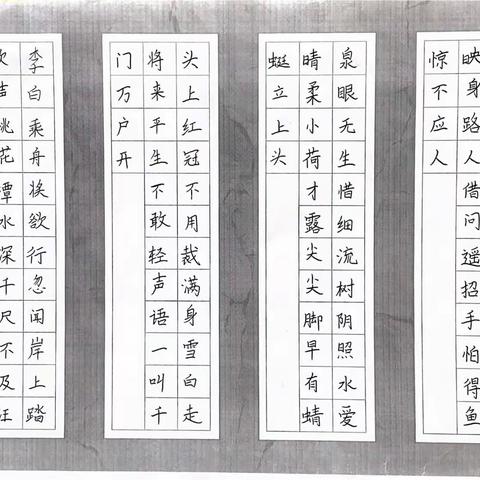 映身路人借问遥招手怕得鱼
惊不应人
泉眼无生惜细流树阴照水爱
晴柔小荷才露尖尖脚早有蜻
蜓立上头
头上红冠不用裁满身雪白走
将来平生不敢轻声语一叫千
门万户开
李白乘舟将欲行忽闻岸上踏
声桃花潭水深千尺不及汪